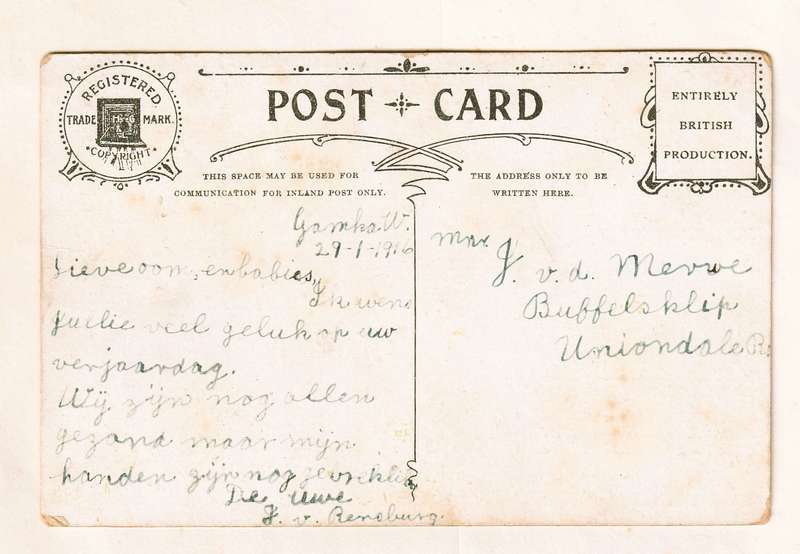 REGISTERED
TRADE MARK.
COPYRIGHT
POST CARD
ENTIRELY
BRITISH
PRODUCTION.
THIS SPACE MAY BE USED FOR
COMMUNICATION FOR INLAND POST ONLY.
THE ADDRESS ONLY TO BE
WRITTEN HERE.
Gamka W.
29-1-1916
Lieve oom, en babies,,
Ik wens
Juelie veel geluk op uw
verjaardag.
Wij zijn nog allen
gezond maar mijn
handen zijn nog
De uwe
J. v. Rensburg.
J. v. d. Merwe
Buffelsklip
Uniondale Rd